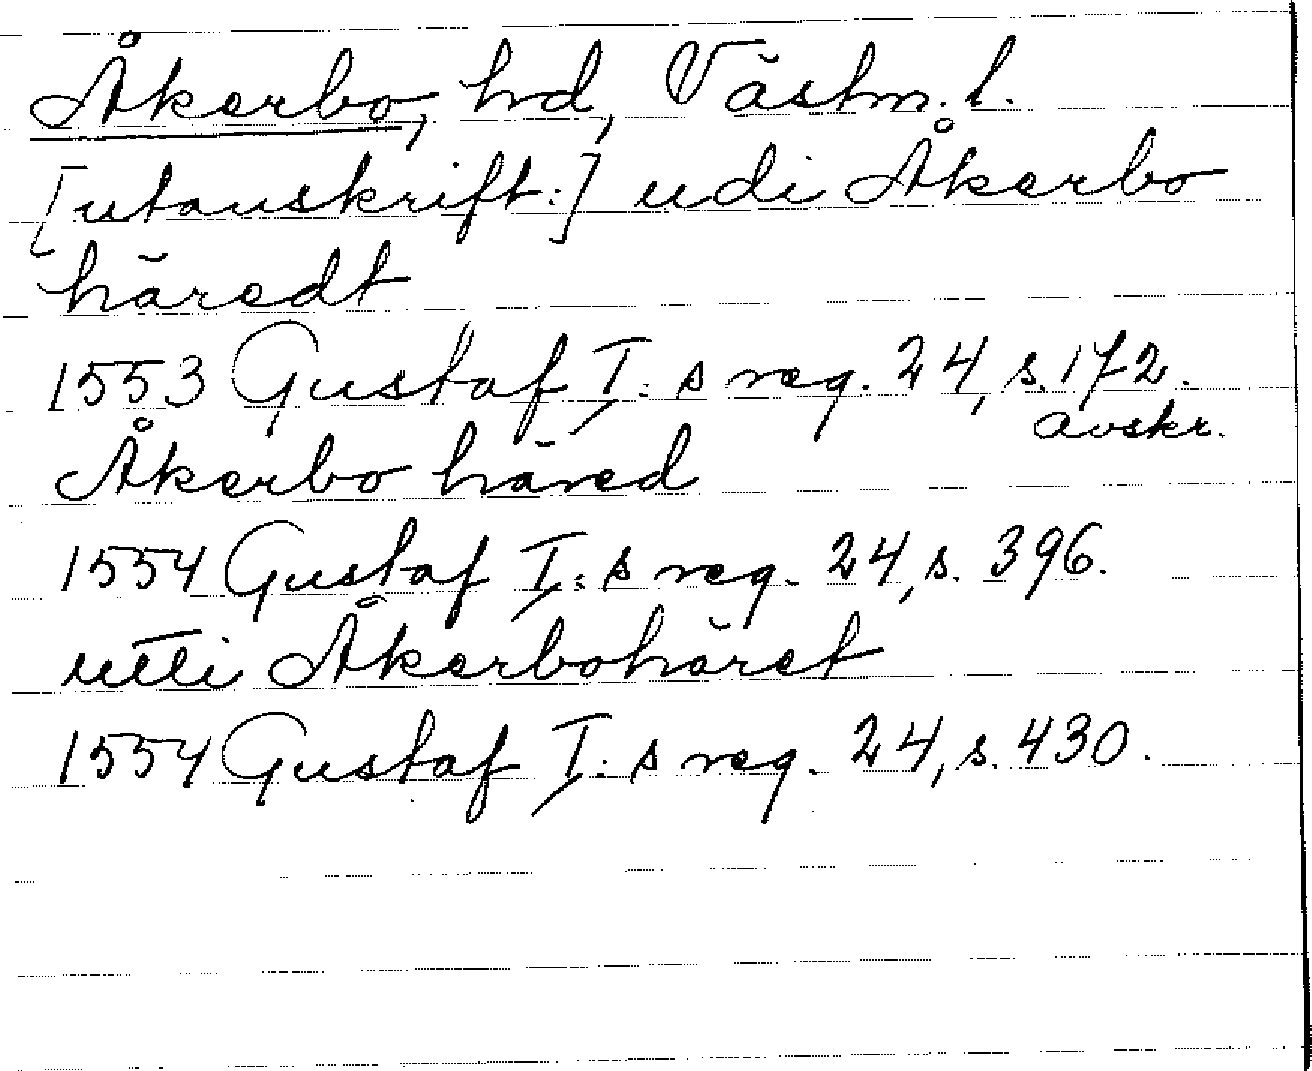 Åkerbo, hd, Västm. l.
[utanskrift:] udi Åkerbo
häredt
1553 Gustaf I:s reg. 24, s. 172.
avskr.
Åkerbo häred
1554 Gustaf I:s reg. 24, s. 396.
utti Åkerbohäret
1554 Gustaf I:s reg. 24, s. 430.